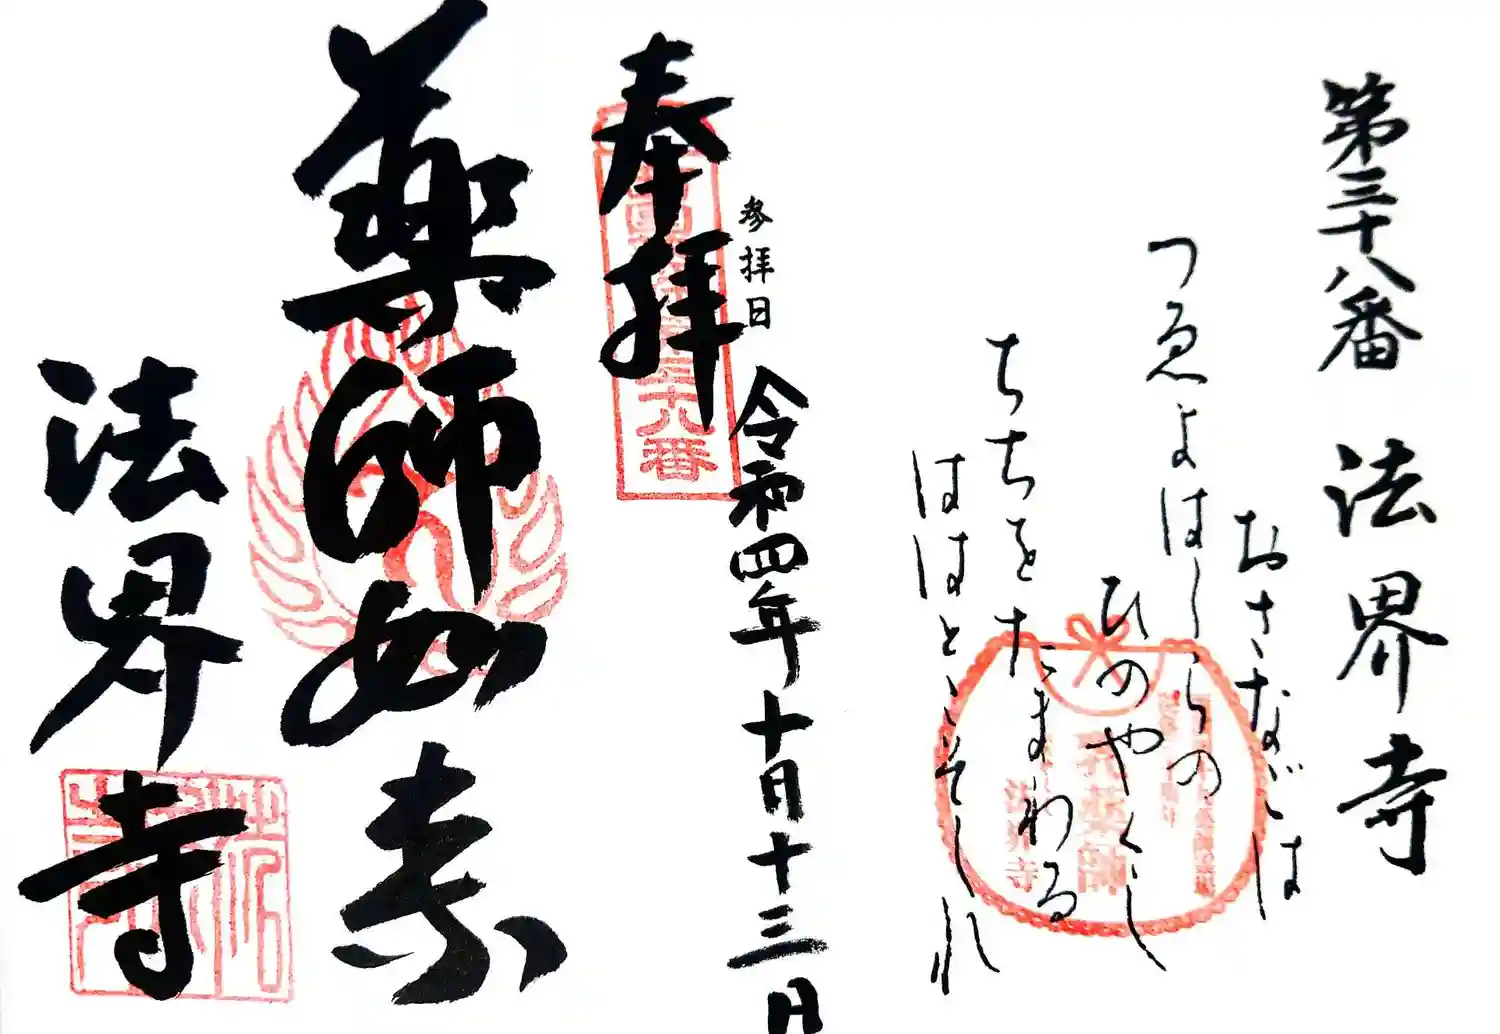 第三十八番 法界寺
おさなごは
つゑよはしらの
ひのやくし
ちちをたまわる
ははとこそしれ
参拝日
令和四年十月十三日
奉拝
薬師如来
法界寺
三十八番
乳薬師
法界寺